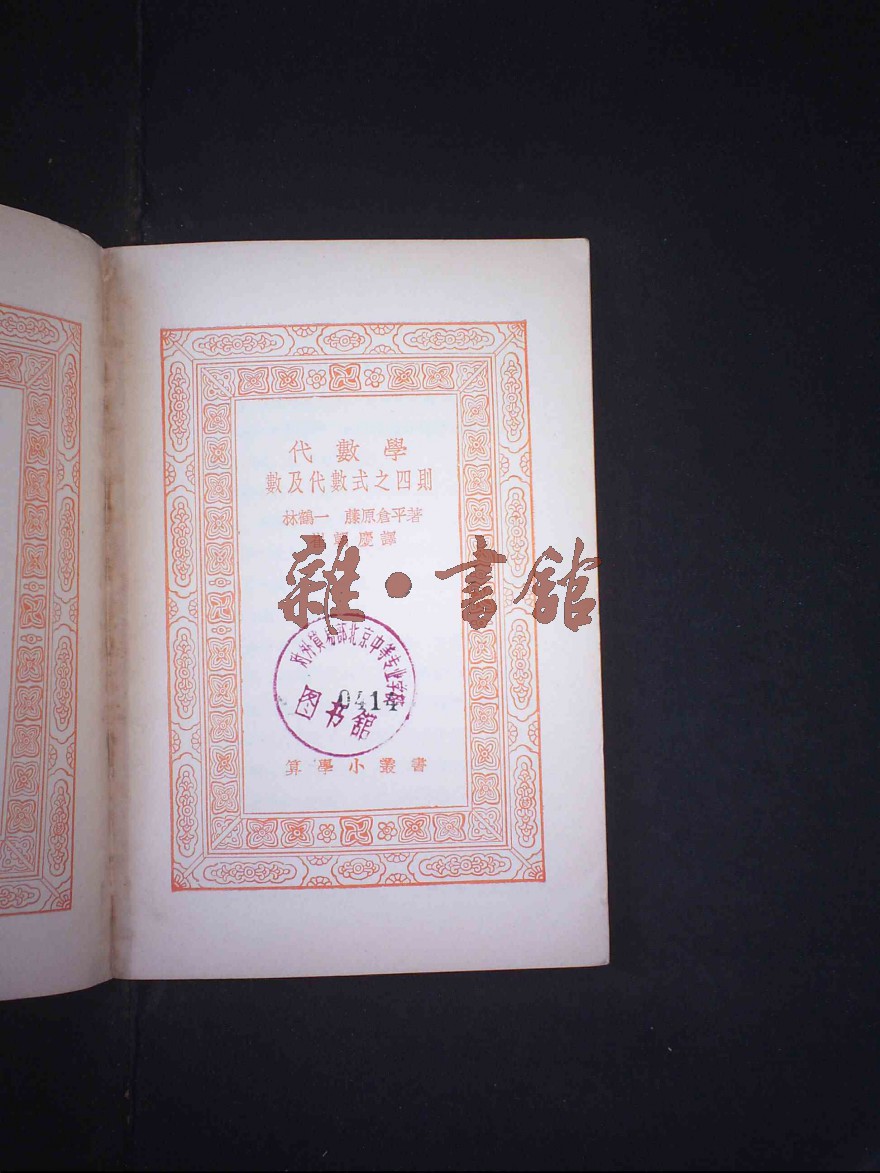 代數學
數及代數式之四則
林鶴一 藤原倉平著
慶譯
雜·書館
外貿易部北京中等专业学校
图书館
0414
算學小叢書